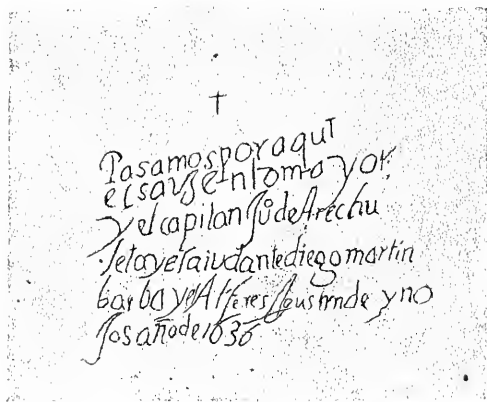 †
Pasamos por aqui
el sarjento mayor,
y el capitan Juº de Arechu
leta y el aiudante diego martin
barba y el Alferes Agustin de yno
jos año de 1636